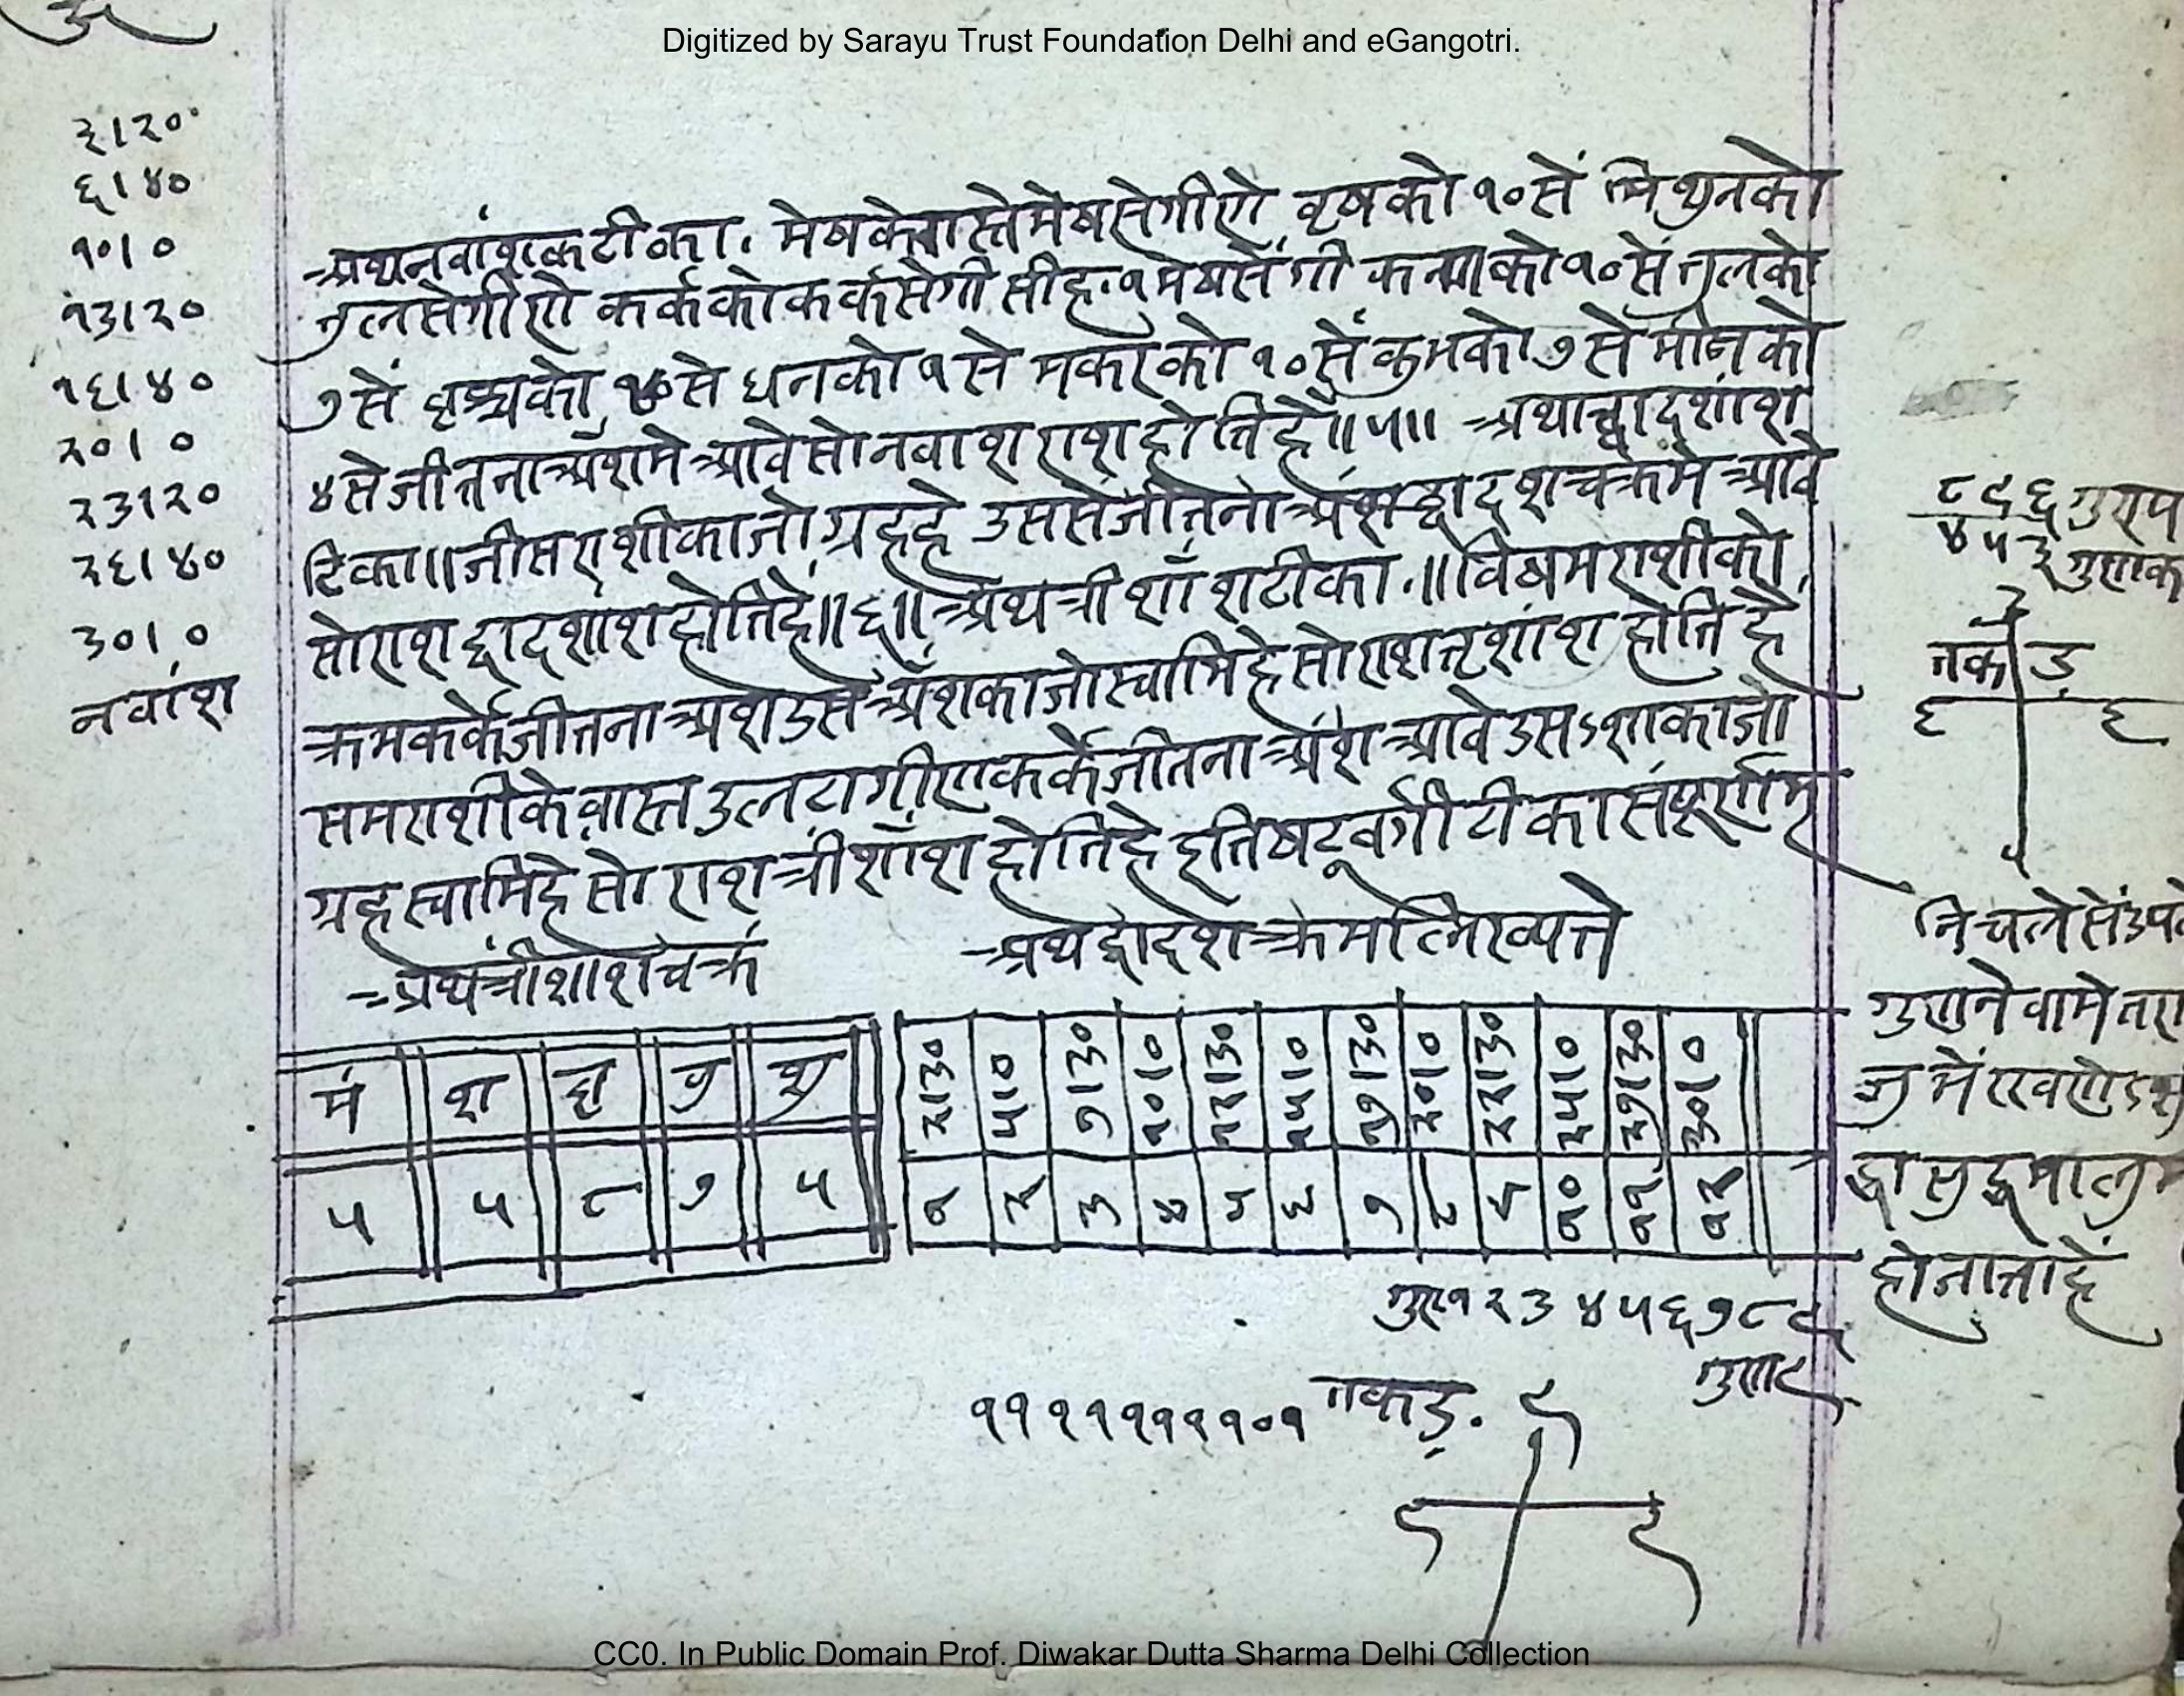 Digitized by Sarayu Trust Foundation Delhi and eGangotri.
३।२०
६।४०
१०।०
१३।२०
१६।४०
२०।०
२३।२०
२६।४०
३०।०
नवांश
अथ नवांशक टीका. मेषके वास्ते मेषसे गीणे वृषको १०सें मिथुनको
तुलसे गीणे कर्कको कर्कसे गी सीह.१मेषसें गी कन्याको १०सें तुलको
७सें को से धनको १से मकरको १०सें कुभको ७से मीनको
४से जीतना अँशमे आवे सो नवाश राश होति है॥५॥ अथ द्वादशांश
टिका॥ जीस राशीका जो ग्रह है उससे जीतना अंश द्वादश चक्रमे आवे
सो राश द्वादशांश होति है॥६॥ अथ त्रीशाँश टीका.॥ विषम राशीको
क्रम कर्के जीतना अश उसे अँशका जो स्वामि है सो राश तृशांश होति है
सम राशीके वास्त उलटा गीण कर्के जीतना अंश आवे उस ऽशका जो
ग्रह स्वामि है सो राश त्रीशाँश होति है इति षट्वर्गी टीका संपूर्णम्
अथ त्रीशांश चक्रं अथ द्वादश क्रम लिख्यत्ते
मं श बृ बु शु
५ ५ ८ ७ ५
२।३० ५।० ७।३० १०।० १२।३० १५।० १७।३० २०।० २२।३० २५।० २७।३० ३०।०
१ २ ३ ४ ५ ६ ७ ८ ९ १० ११ १२
गुण १२३४५६७८९
गुण ९
११११११११०१ तकड़.
९
९ ९
८९६ गुण्य
४५३ गुणक
३
तकड़
६ ६
निचले सें उपले
गुणने वामे
होजाता हें
CC0. In Public Domain Prof. Diwakar Dutta Sharma Delhi Collection